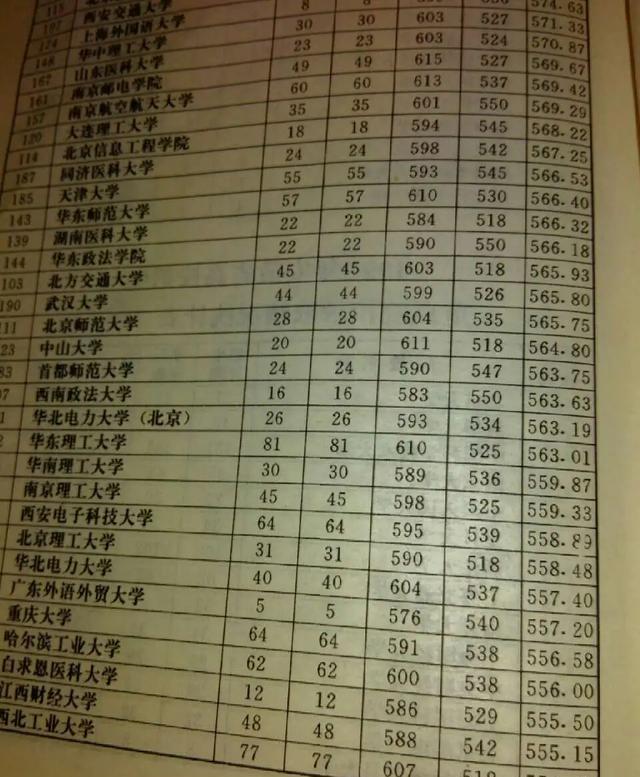 115 北京
197 西安交通大学
124 上海外国语大学 8 8 574.63
148 华中理工大学 30 30 603 527 571.33
162 山东医科大学 23 23 603 524 570.87
161 南京邮电学院 49 49 615 527 569.67
157 南京航空航天大学 60 60 613 537 569.42
120 大连理工大学 35 35 601 550 569.29
114 北京信息工程学院 18 18 594 545 568.22
187 同济医科大学 24 24 598 542 567.25
185 天津大学 55 55 593 545 566.53
143 华东师范大学 57 57 610 530 566.40
139 湖南医科大学 22 22 584 518 566.32
144 华东政法学院 22 22 590 550 566.18
103 北方交通大学 45 45 603 518 565.93
190 武汉大学 44 44 599 526 565.80
111 北京师范大学 28 28 604 535 565.75
23 中山大学 20 20 611 518 564.80
83 首都师范大学 24 24 590 547 563.75
07 西南政法大学 16 16 583 550 563.63
1 华北电力大学（北京） 26 26 593 534 563.19
2 华东理工大学 81 81 610 525 563.01
华南理工大学 30 30 589 536 559.87
南京理工大学 45 45 598 525 559.33
西安电子科技大学 64 64 595 539 558.89
北京理工大学 31 31 590 518 558.48
华北电力大学 40 40 604 537 557.40
广东外语外贸大学 5 5 576 540 557.20
重庆大学 64 64 591 538 556.58
哈尔滨工业大学 62 62 600 538 556.00
白求恩医科大学 12 12 586 529 555.50
江西财经大学 48 48 588 542 555.15
西北工业大学 77 77 607